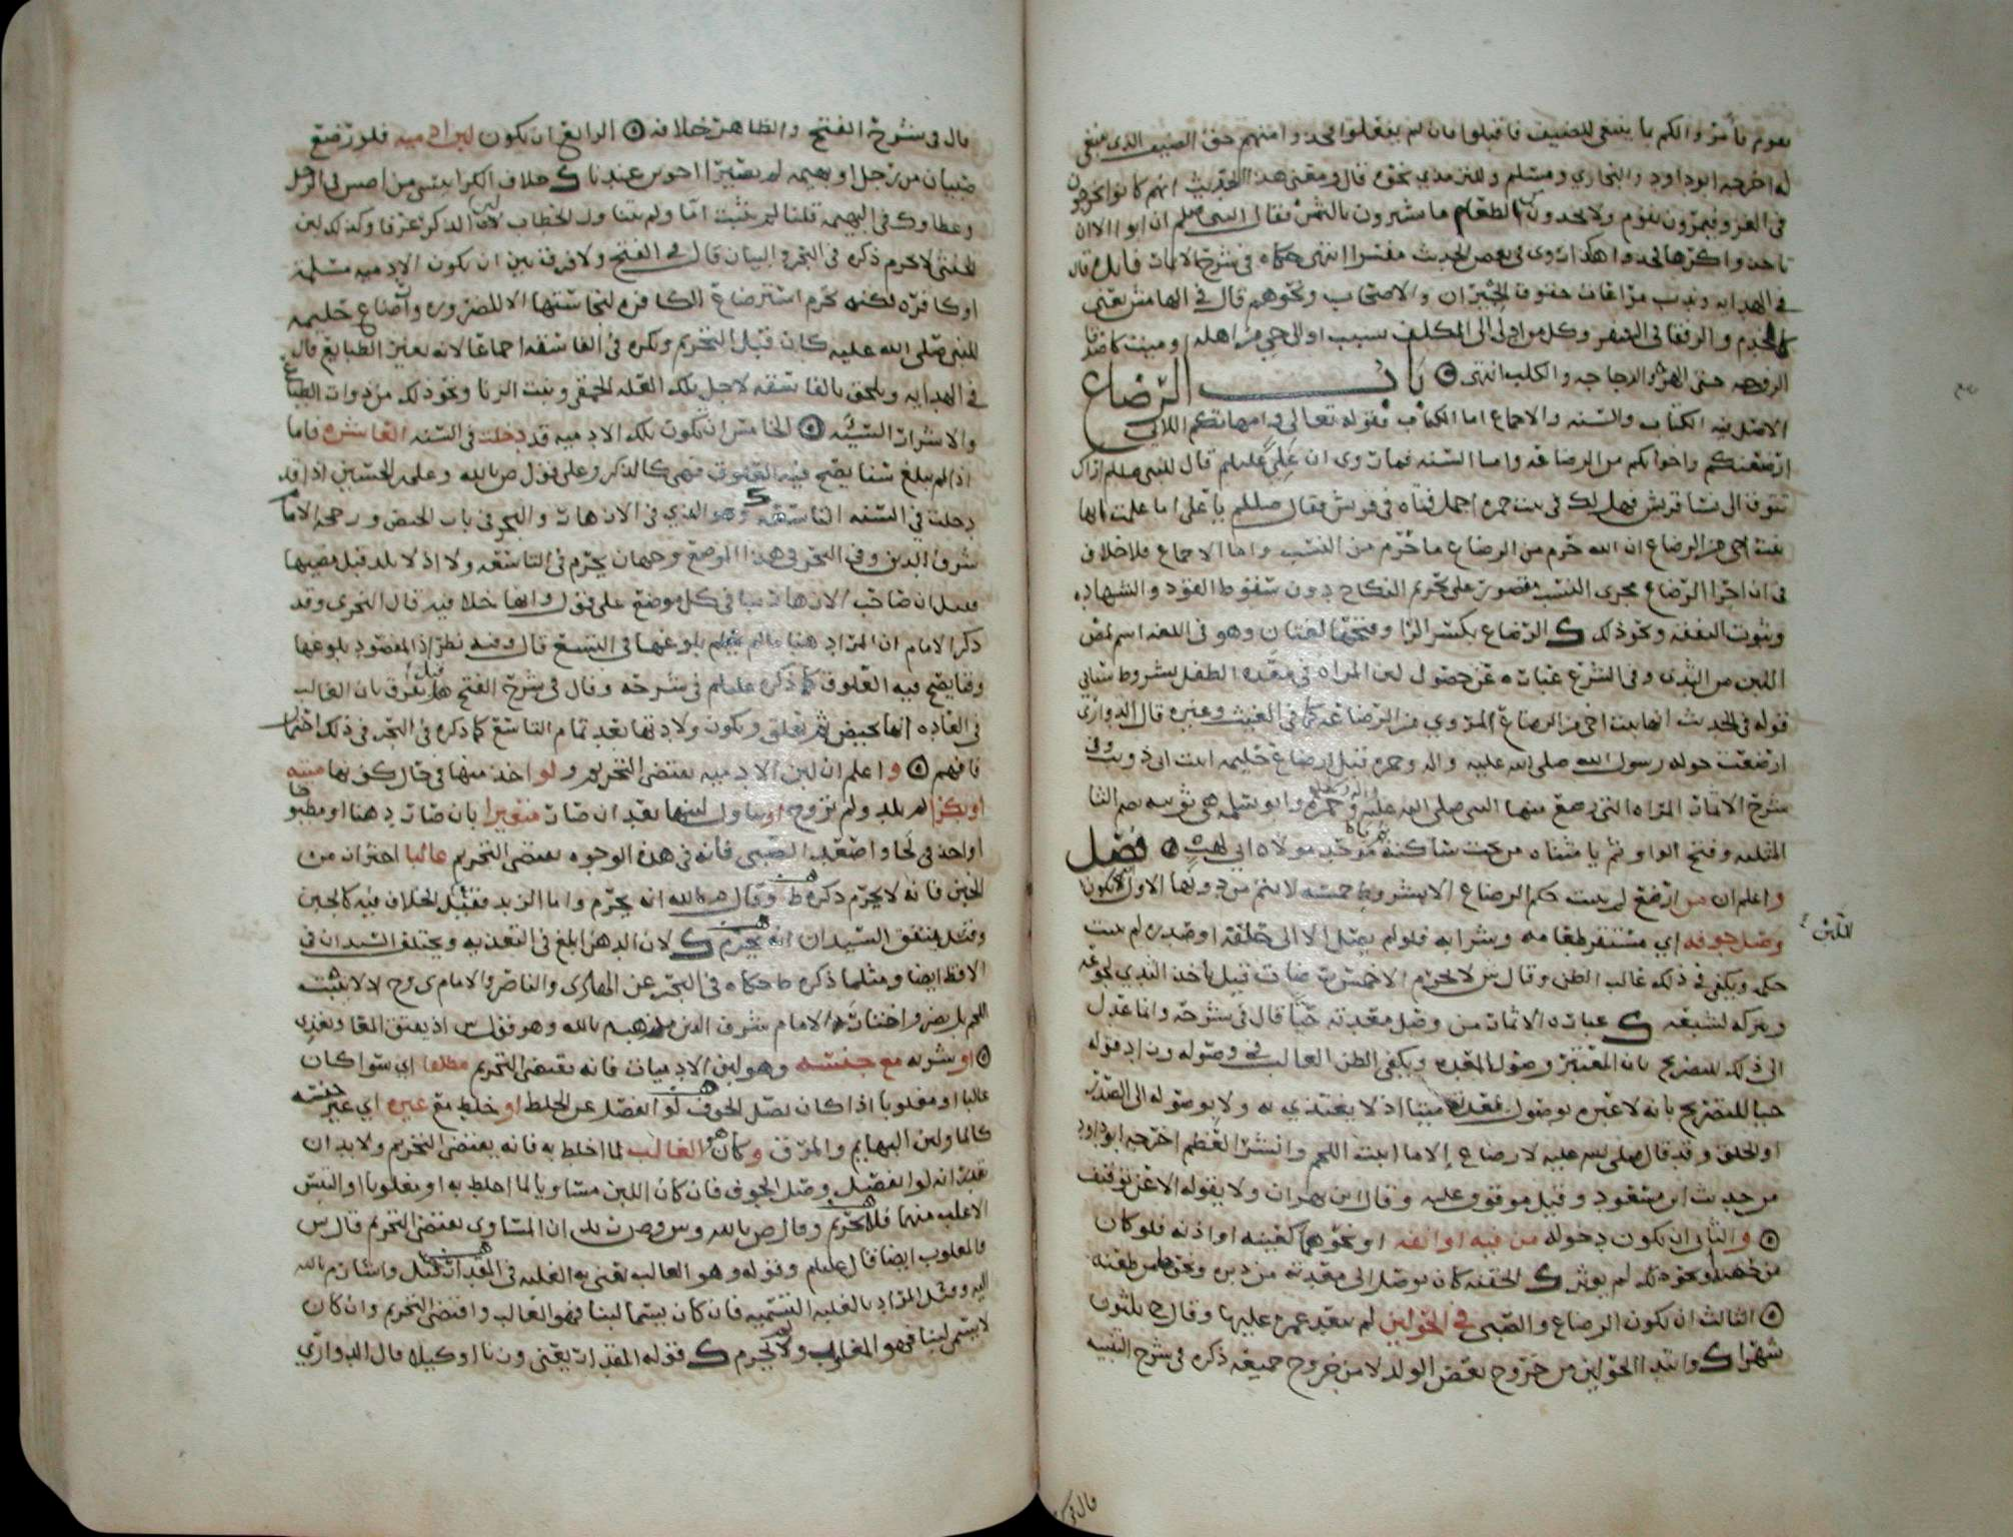 بقوم فأمروا لكم بما ينبغي للضيف فاقبلوا فان لم يفعلوا فخذوا منهم حق الضيف الذي ينبغي
له اخرجه ابوداود والبخاري ومسلم وللترمذي نحوه قال ومعنى هذا الحديث انهم كانوا يخرجون
في الغزو فيمرون بقوم ولا يجدون من الطعام ما يشترون بالثمن فقال النبي صلعم ان ابوا الا ان
تأخذوا كرها فخذوا هكذا روي في بعض الحديث مفسرا انتهى حكاه في شرح الاثمار
في الهدايه وندب مراعات حقوق الجيران والاصحاب ونحوهم قال في الهامش يعني
كالخدم والرفقا في السفر وكل مواد لى الى المكلف بسبب
الزوجه حتى الهر والدجاجه والكلب انتهى ۞ باب الرضاع
الاصل فيه الكتاب والسنه والاجماع اما الكتاب فقوله تعالى وامهاتكم اللاتي
ارضعنكم واخواتكم من الرضاعه واما السنه فما روي ان علي عليلم قال للنبي صللم اراك
تتوق الى نسا قريش فهل لك في بنت حمزه اجمل فتاه في قريش فقال صللم يا علي اما علمت انها
بنت اخي من الرضاع ان الله حرم من الرضاع ما حرم من النسب واما الاجماع فلا خلاف
في ان اجرا الرضاع مجرى النسب مقصور على تحريم النكاح دون سقوط القود والشهاده
وثبوت النفقه ونحو ذلك ك الرضاع بكسر الرا وفتحها لغتان وهو في اللغه اسم لمص
اللبن من الثدي وفي الشرع عباره عن حصول لبن المراه في معده الطفل بشروط ستاتي
قوله في الحديث انها بنت اخي من الرضاع المروي من الرضاعه كما في الغيث وغيره قال الدواري
ارضعت حوله رسول الله صلى الله عليه واله وحمزه قبل ارضاع حليمه ابنت ابي ذويب وفي
شرح الاثمار المراه التي رضع منها النبي صلى الله عليه واله وحمزه وابو سلمه هي ثويبه بضم الثا
المثلثه وفتح الواو ثم يا مثناه من تحت ساكنه ثم موحده مولاه ابي لهب ۞ فصل
واعلم ان من ارضع لم يثبت حكم الرضاع الا بشروط خمسه لا يتم من دونها الاول ان يكون
اللبن
وصل جوفه اي مستقر طعامه وشرابه فلو لم يصل الا الى حلقه او صدره لم يثبت
حكمه ويكفي في ذلك غالب الظن وقال ش لا يحرم الا خمس رضعات قيل ياخذ الثدي لجوعه
ويتركه لشبعه ك عباره الاثمار من وصل معدته حيا قال في شرحه وانما عدل
الى ذلك للتصريح بان المعتبر وصول المعده ويكفي الظن الغالب في وصوله وزاد قوله
حيا للتصريح بانه لا عبره بوصول معدته ميتا اذ لا يغتذي به ولا بوصوله الى الصدر
او الحلق وقد قال صلى الله عليه لا رضاع إلا ما انبت اللحم وانشز العظم اخرجه ابوداود
من حديث ابن مسعود وقيل موقوف عليه وقال ابن بهران ولا يقوله الا عن توقيف
۞ والثاني ان يكون دخوله من فيه او انفه او نحوهما كعينه او اذنه فلو كان
من حقنه او نحو ذلك لم يؤثر ك الحقنه كان توصل الى معدته من دبره ونحوها من طعنه
۞ الثالث ان يكون الرضاع والصبي في الحولين لم يتعد عمره عليهما وقال ح ثلثون
شهرا ك وابتدا الحولين من خروج بعض الولد لا من خروج جميعه ذكره في شرح
قال في شرح
قال في شرح الفتح والظاهر خلافه ۞ الرابع ان يكون لبن ادميه فلو رضع
صبيان من رجل او بهيمه لم يصيرا اخوين عندنا ك خلاف الكرابيسي من اصش في الرجل
وعطا وك في البهيمه قلنا لم يثبت اما ولم يتناول الخطاب لبن الذكر عرفا وكذلك لبن
الخنثى لا يحرم ذكره في البحر والبيان قال في الفتح ولا فرق بين ان يكون الادميه مسلمه
او كافره لكنه يحرم استرضاع الكافره لنجاستها الا للضروره وارضاع حليمه
للنبي صلى الله عليه كان قبل التحريم ويكره في الفاسقه اجماعا لانه يغير الطبايع قال
في الهدايه ويلحق بالفاسقه لاجل تلك العله الحمقى وبنت الزنا ونحو ذلك من ذوات الطبايع
والاثرات السيئه ۞ الخامس ان يكون تلك الادميه قد دخلت في السنه العاشره فاما
اذا لم يبلغ سنا يصح فيه العلوق فهي كالذكر وعلى قول ص بالله وعلي بن الحسين اذا قد
دخلت في السنه التاسعه ك وهو الذي في الازهار والبحر في باب الحيض ورجحه الامام
شرف الدين وفي البحر في هذا الموضع وجهان يحرم في التاسعه ولا اذ لا يلد قبل مضيها
فقيل ان صاحب الازهار بنا في كل موضع على قول وانها خلافيه قال النجري وقد
ذكر الامام ان المراد هنا ما لم يعلم بلوغها في التسع قال وفيه نظر اذ المقصود بلوغها
وقتا يصح فيه العلوق كما ذكره عليلم في شرحه وقال في شرح الفتح قيل هنا يفرق بان الغالب
في العاده انها تحيض ثم تعلق ويكون ولادتها بعد تمام التاسع كما ذكره في البحر في ذلك احتمال
فافهم ۞ واعلم ان لبن الادميه يقتضي التحريم ولو اخذ منها في حال كونها ميته
او بكرا لم يلد ولم تزوج او تناول لبنها بعد ان صار متغيرا بان صار دهنا او مطبوخا
او اخذ في لحا واضعف الصبي فانه في هذه الوجوه يقتضي التحريم غالبا احتراز من
الجبن فانه لا يحرم ذكره ط وقال م بالله انه يحرم واما الزبد فقيل الخلاف فيه كالجبن
وقيل يتفق السيدان انه يحرم ك لان الدهن ابلغ في التغذيه ويختلف السيدان في
الاقط ايضا ومثلما ذكره ط حكاه في البحر عن الهادي والناصر والامام ي وح اذ لا ينبت
اللحم بل يضر واختار الامام شرف الدين مذهب م بالله وهو قول ش اذ يفتق المعا ويغذي
۞ او بشوبه مع جنسه وهو لبن الادميات فانه يقتضي التحريم مطلقا اي سوا كان
غالبا او مغلوبا اذا كان يصل الجوف لو انفصل عن الخلط او خلط مع غيره اي غير جنسه
كالما ولبن البهايم والمرق وكان هو الغالب لما اخلط به فانه يقتضي التحريم ولا بد ان
يقدر انه لو انفصل وصل الجوف فان كان اللبن مساويا لما اخلط به او مغلوبا او التبس
الاغلب منهما فلا تحريم وقال ص بالله وس وص ان المساوي يقتضي التحريم قال ش
والمغلوب ايضا قال عليلم وقوله وهو الغالب يعني به الغلبه في المقدار قيل واشار م بالله
اليه وقيل المراد بالغلبه التسميه فان كان يسمى لبنا فهو الغالب واقتضى التحريم وان كان
لا يسمى لبنا فهو المغلوب ولا يحرم ك قوله المقدار يعني وزنا او كيلا قال الدواري